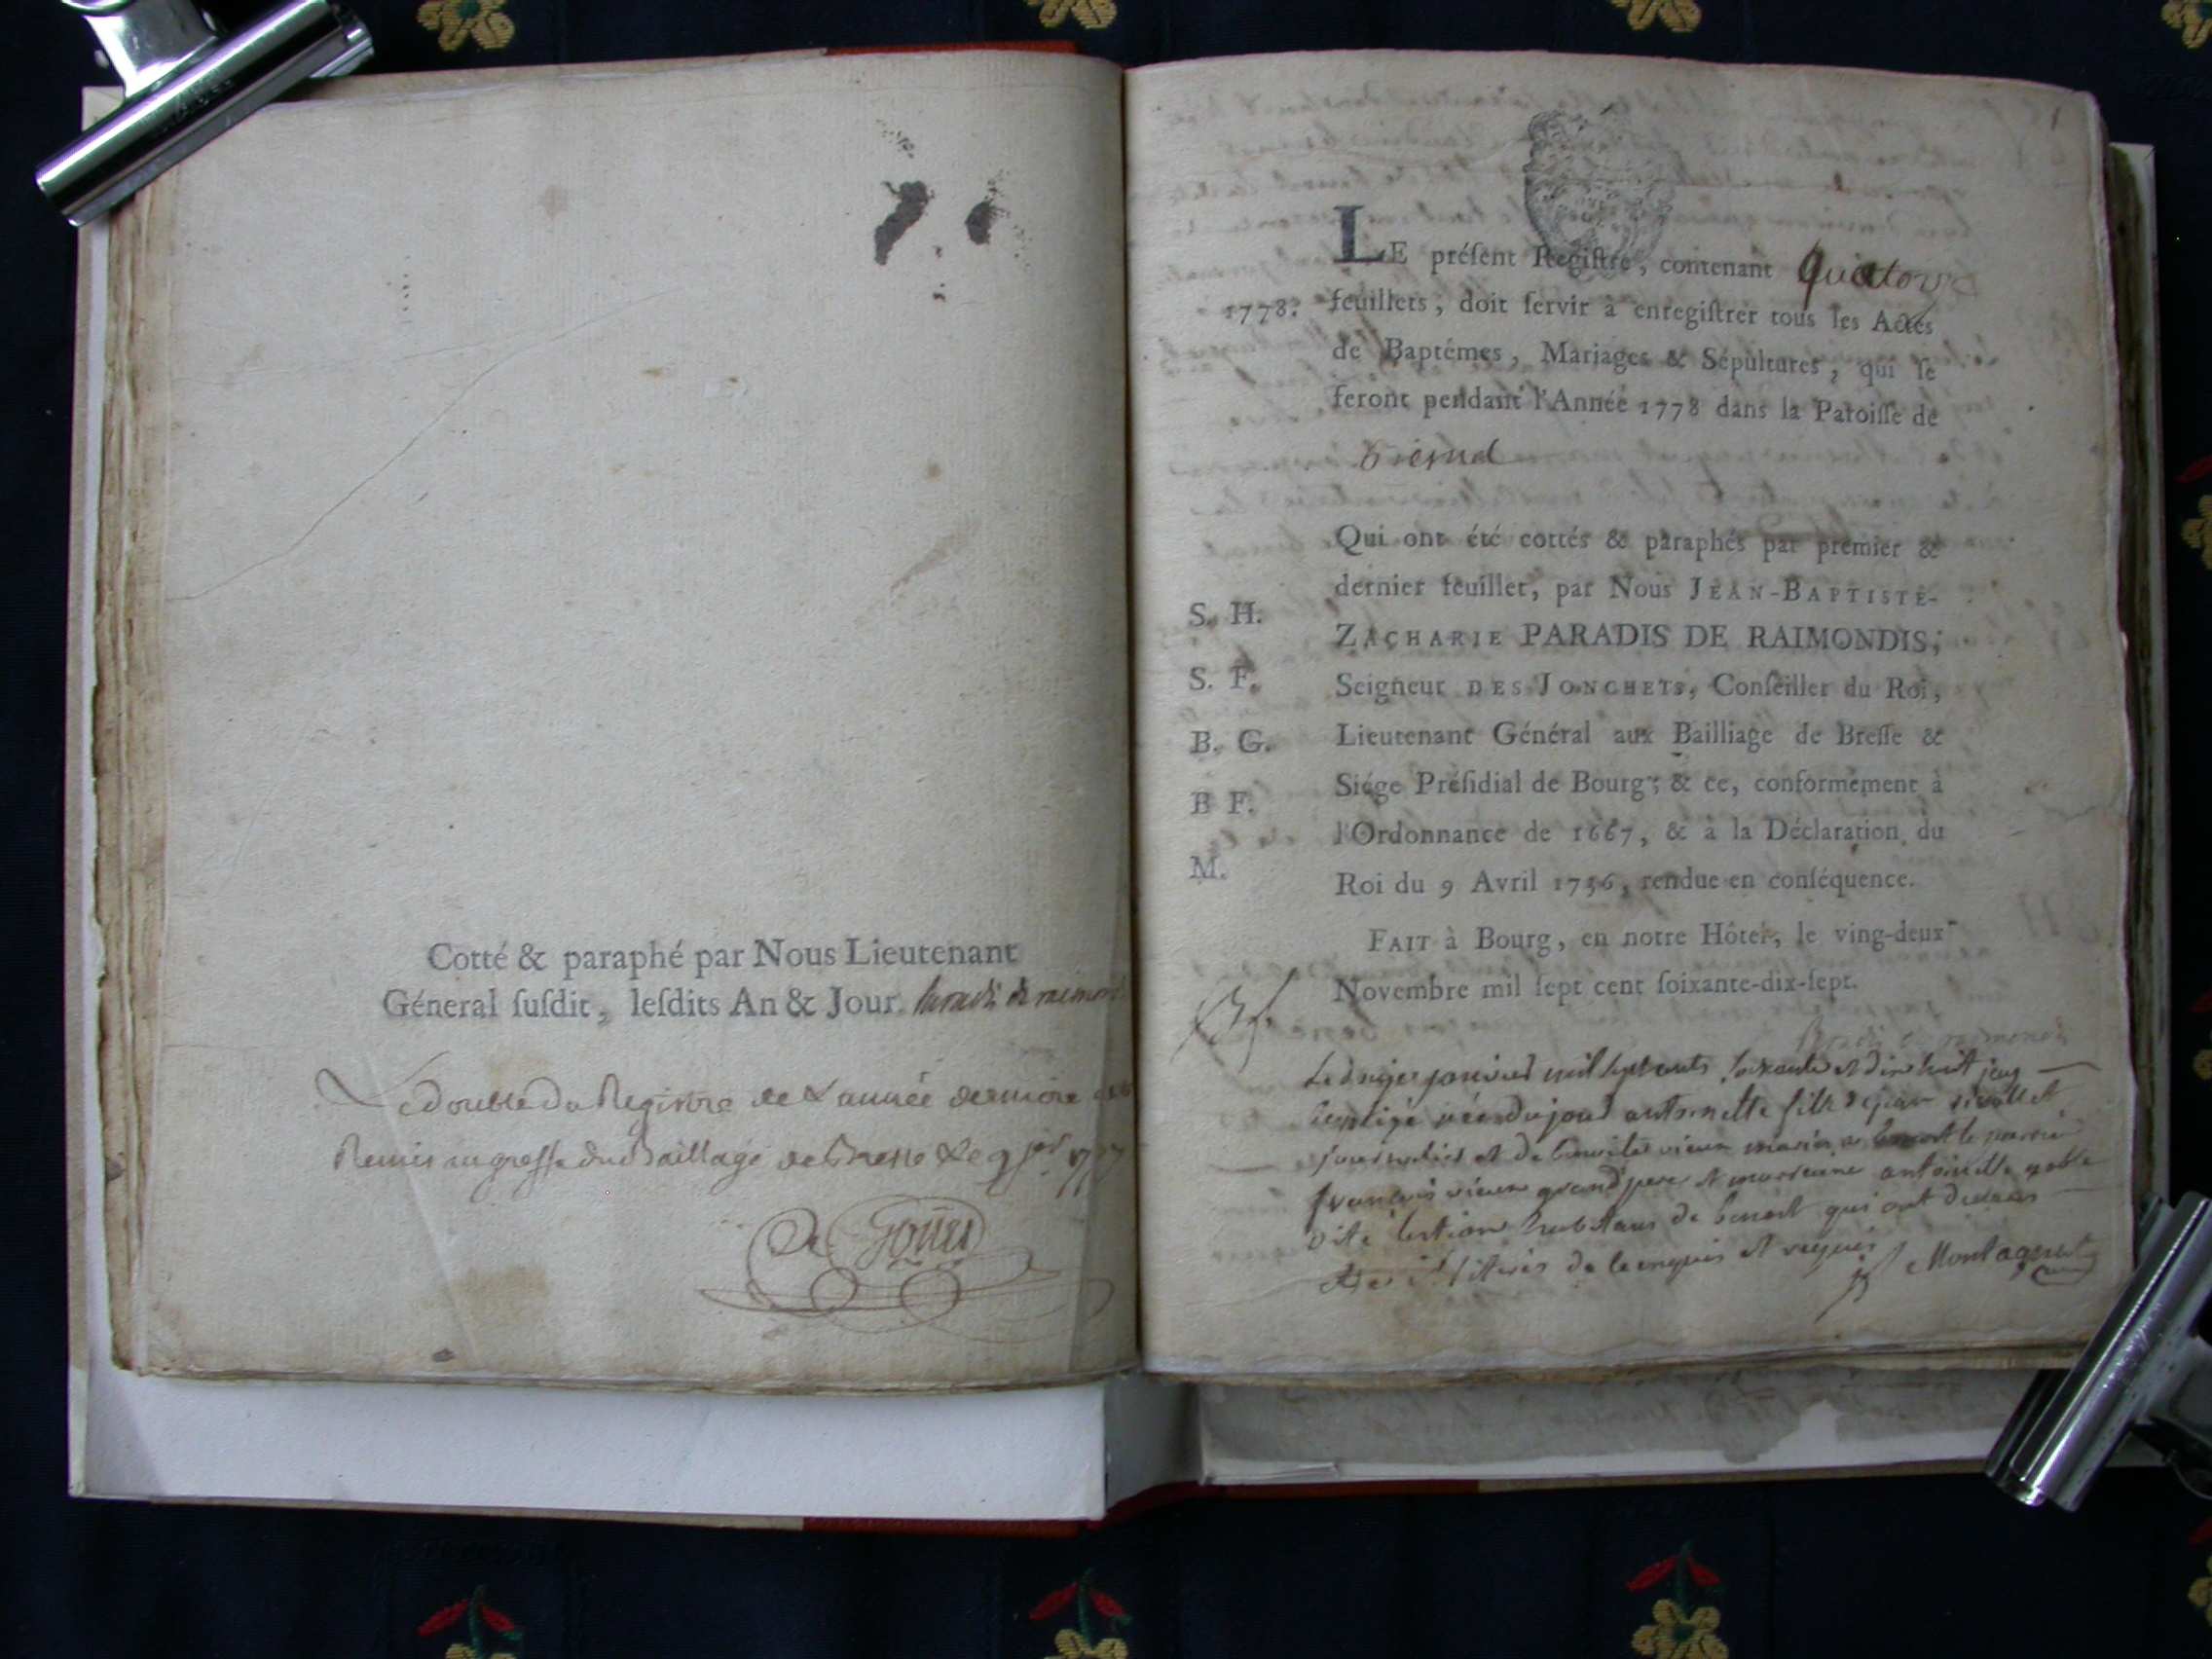 Cotté & paraphé par Nous Lieutenant
Géneral ſuſdit, leſdits An & Jour. paradis de raimondis
Le double du Registre de L'année derniere
Remis au greffe du Baillage de Bresse Le 9
De Goües
1
LE préſent Regiſtre, contenant quatorze
1778.
feuillets, doit ſervir à enregiſtrer tous les Actes
de Baptêmes, Mariages & Sépultures, qui ſe
feront pendant l'Année 1778 dans la Paroiſſe de
Qui ont été cottés & paraphés par premier &
dernier feuillet, par Nous JEAN-BAPTISTE-
ZACHARIE PARADIS DE RAIMONDIS,
Seigneur DES JONCHETS, Conſeiller du Roi,
Lieutenant Général aux Bailliage de Breſſe &
Siége Préſidial de Bourg; & ce, conformément à
l'Ordonnance de 1667, & à la Déclaration du
Roi du 9 Avril 1736, rendue en conſéquence.
S. H.
S. F.
B. G.
B F.
M.
FAIT à Bourg, en notre Hôtel, le ving-deux
Novembre mil ſept cent ſoixante-dix-ſept.
paradis de raimondis
janvier mil sept cents soixante et dix huit
née du jour antoinette fille de
et de
francois vieux grand pere et marraine antoinette
habitans de qui ont
de ce enquis et requis Montagnat